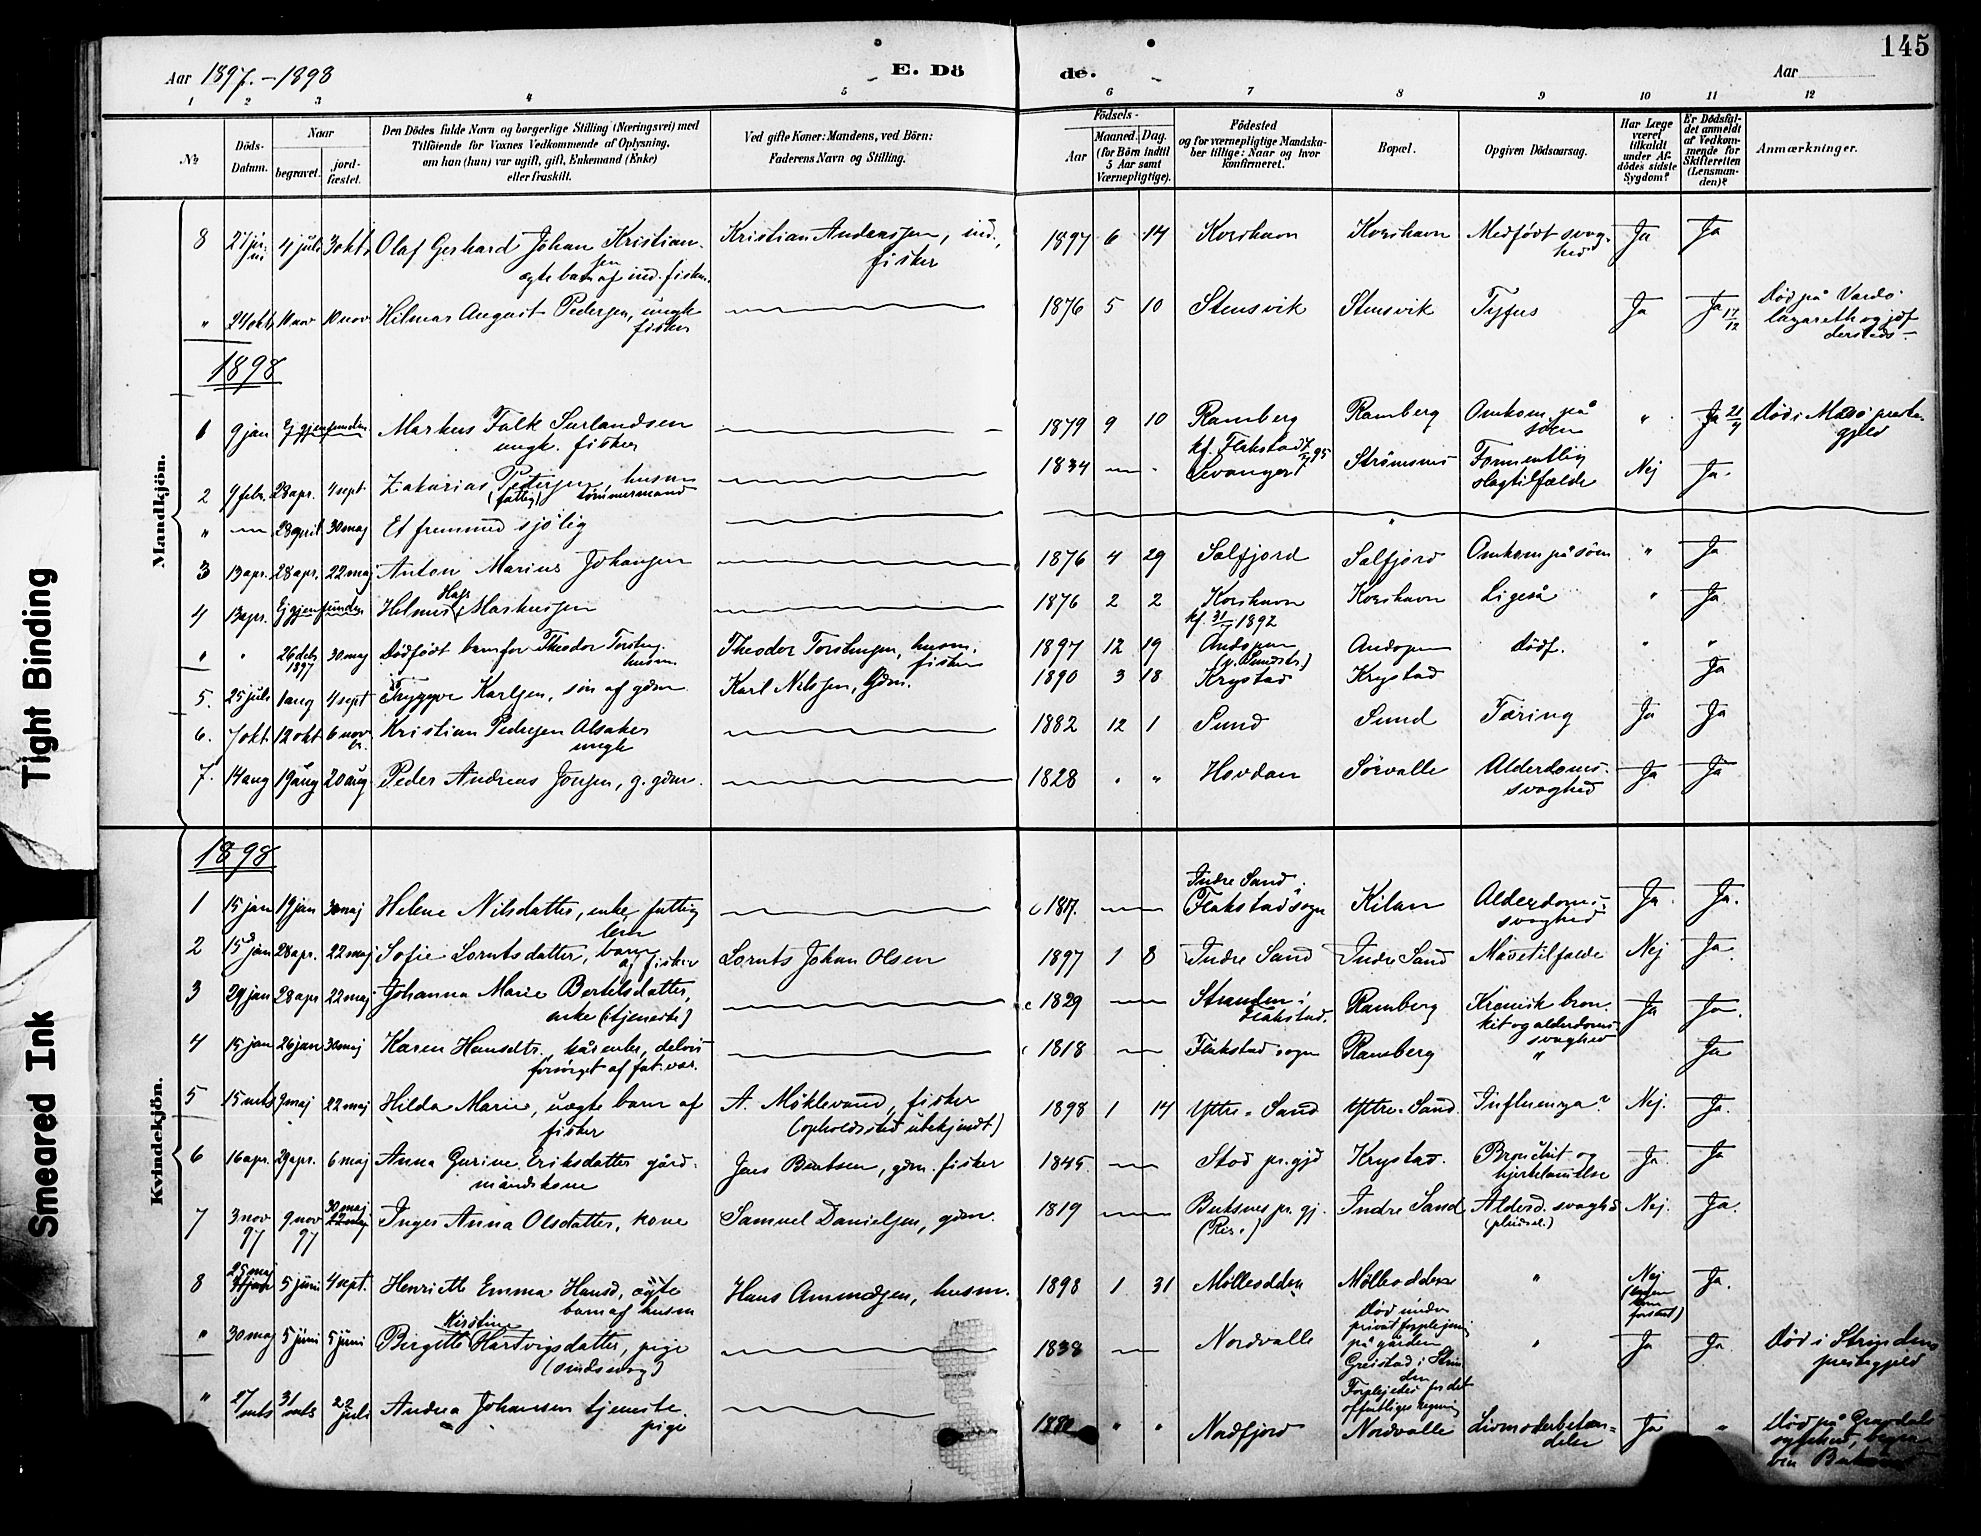 145
Aar 1897.-1898
E. Döde.
Aar
1 2 3 4 5 6 7 8 9 10 11 12
№
Döds-Datum.
Naar
begravet.
jord-fæstet.
Den Dödes fulde Navn og borgerlige Stilling (Næringsvei) med
Tilföiende for Voxnes Vedkommende af Oplysning,
om han (hun) var ugift, gift, Enkemand (Enke)
eller fraskilt.
Ved gifte Koner: Mandens, ved Börn:
Faderens Navn og Stilling.
Födsels-
Aar
Maaned. Dag.
(for Börn indtil
5 Aar samt
Værnepligtige).
Födested
og for værnepligtige Mandska-
ber tillige: Naar og hvor
konfirmeret.
Bopæl.
Opgiven Dödsaarsag.
Har Læge
været
tilkaldt
under Af-
dödes sidste
Sygdom?
Er Dödsfal-
det anmeldt
af Vedkom-
mende for
Skifteretten
(Lensman-
den)?
Anmærkninger.
Mandkjön.
8 27 juni 4 juli 3 okt. Olaf Gerhard Johan Kristiansen
ægte barn af ind. fisker
Kristian Anderssen, ind., fisker
1897 6 14 Korshavn Korshavn Medfödt svaghed Ja Ja
" 24 okt 10 nov 10 nov Hilmar August Pedersen, ungk. fisker
1876 5 10 Stensvik Stensvik Tyfus Ja Ja 17/12 död på Vardö lazareth og jdf dersteds
1898
1 9 jan Ej gjenfunden Markus Falk Surlandsen
ungk. fisker
1879 9 10 Ramberg Ramberg Omkom på söen " Ja död i Masö prestegjeld
kf. Flakstad 95
2 9 febr. 28 apr. 4 sept. Zakarias Pedersen, husm
(fattig) tömmermand
1834 Levanger Strömsnes Formentlig slagtilfælde Nej Ja.
" 28 april 30 maj Et fremmed sjölig
3 13 apr. 28 apr. 22 maj Anton Marius Johansen
1876 4 29 Selfjord Selfjord Omkom på söen " Ja
4 13 apr. Ej gjenfunden Helmer Markussen
1876 2 2 Korshavn Korshavn Ligeså " Ja
kf. 1892
" " 26 dcb 1897 30 maj Dödfödt barn for Theodor Torstens. husm.
Theodor Torstensen, husm. fisker
1897 12 19 Andopen Andopen dödf. " "
5. 25 juli 1 aug 4 sept Tryggve Karlsen, sön af gdm. Karl Nilssen, Gdm.
1890 3 18 Krystad Krystad Ja
6. 7 okt. 12 okt 6 nov Kristian Pedersen Alsaker
ungk
1882 12 1 Sund Sund Tæring Ja Ja
7. 14 aug 19 aug 20 aug. Peder Andreas Jonsen, g. gdm.
1828 " " Hovdan Sörvalle Alderdoms-svaghed Ja Ja
Kvindekjön.
1898
1 15 jan 19 jan 30 maj Helene Nilsdatter, enke, fattig lem
c 1817. Indre Sand. Flakstad sogn Kilan Alderdoms-svaghed Ja Ja.
2 15 jan 28 apr. 22 maj Sofie Lorntsdatter, barn af fisker Lornts Johan Olsen
1897 1 8 Indre Sand Indre Sand Mavetilfælde Nej Ja.
3 29 jan 28 apr 22 maj Johanna Marie Bertelsdatter,
enke (tjeneste)
c 1829 Stranden i Flakstad. Ramberg Kronisk bronkit og alderdoms-svaghed Ja Ja.
4 15 jan 26 jan 30 maj Karen Hansdtr. kårenke, delvis
forsörget af fat.væs.
1818 Flakstad sogn Ramberg " Ja
5 15 mts 9 maj 22 maj Hilda Marie, uægte barn af
fisker
A. Möklevand, fisker
(opholdssted ubekjendt)
1898 1 14 Yttre-Sand Yttre-Sand. Influenza? Nej. Ja.
6 16 apr. 29 apr. 6 maj Anna Gurine Eriksdatter gård-
mandskone
Jens Bentsen, gdm. fisker
1845 Stod pr.gjd Krystad. Bronchit og hjertelamelse Ja. Ja
7 3 nov 97 9 nov 97 30 maj Inger Anna Olsdatter, kone Samuel Danielsen, gdm.
1819 Butsnes pr. gj. Indre Sand Aldersd. svaghed Nej. Ja.
8 25 maj 5 juni 4 sept. Henriette Emma Hansd, ægte
barn af husm
Hans Amundsen, husm.
1898 1 31 Mölleodden Mölleodden " Nej Ja.
Kirstine
" 30 maj 5 juni 5 juni Birgitte Hartvigsdatter, pige
(sindssvag)
1838 Nordvalle död under privat forplejning på gården Greistad i Strinden " Ja Ja. död i Strinden prestegjeld
Forplejedes for det offentliges regning
" 27 mts 31 mts 22 juli Andrea Johansen tjeneste
pige
1880 " " Nordfjord Nordvalle Livmoderbetændelse Ja " död på Gravdal sygehus,
Tight Binding
Smeared Ink